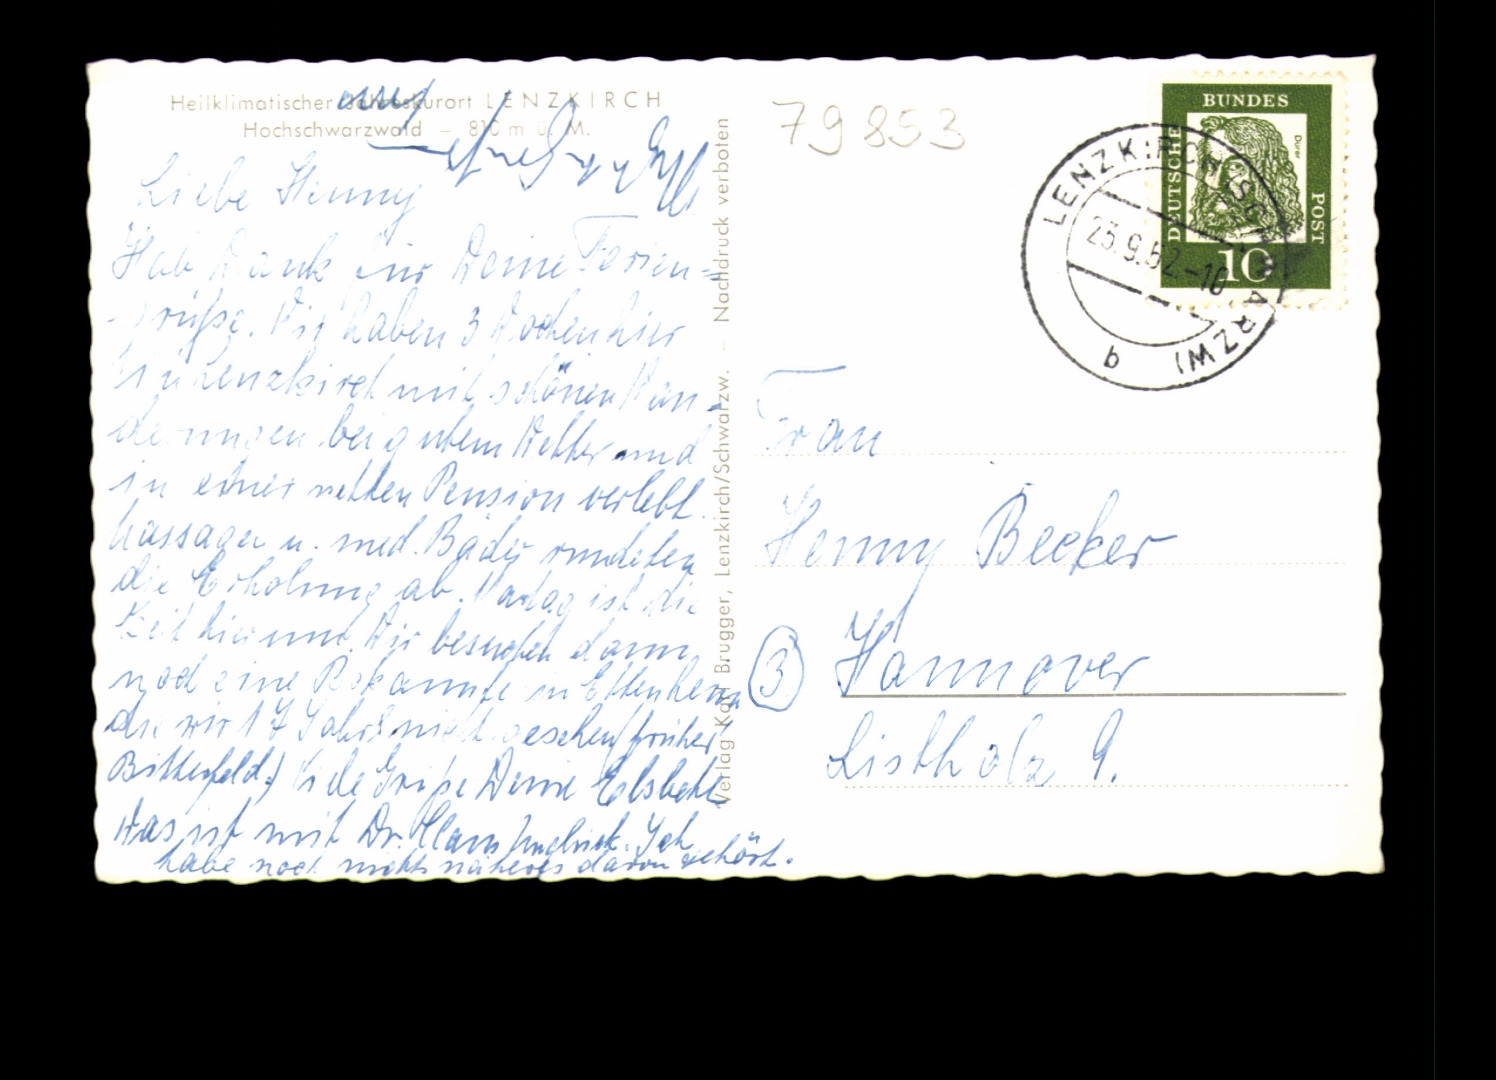 Heilklimatischer Jahreskurort LENZKIRCH
Hochschwarzwald – 810 m ü. M.
Liebe Henny
Hab Dank für Deine Ferien=
grüße. Wir haben 3 Wochen hier
in Lenzkirch mit schönen Wan-
derungen bei gutem Wetter und
in einer netten Pension verlebt.
Massagen u. med. Bäder rundeten
die Erholung ab. ist die
Zeit hier um. Wir besuchen dann
noch eine Bekannte in Ettenheim
die wir 17 Jahre nicht gesehen (früher
Bitterfeld.) Viele Grüße Deine Elsbeth
Was ist mit Dr. Hans Ich
habe noch nichts näheres davon gehört.
Verlag Karl Brugger, Lenzkirch/Schwarzw. – Nachdruck verboten
79853
DEUTSCHE
BUNDES
POST
Dürer
10
LENZKIRCH (SCHWARZW)
23.9.62.-10
b
Frau
Henny Becker
3 Hannover
Listholz 9.